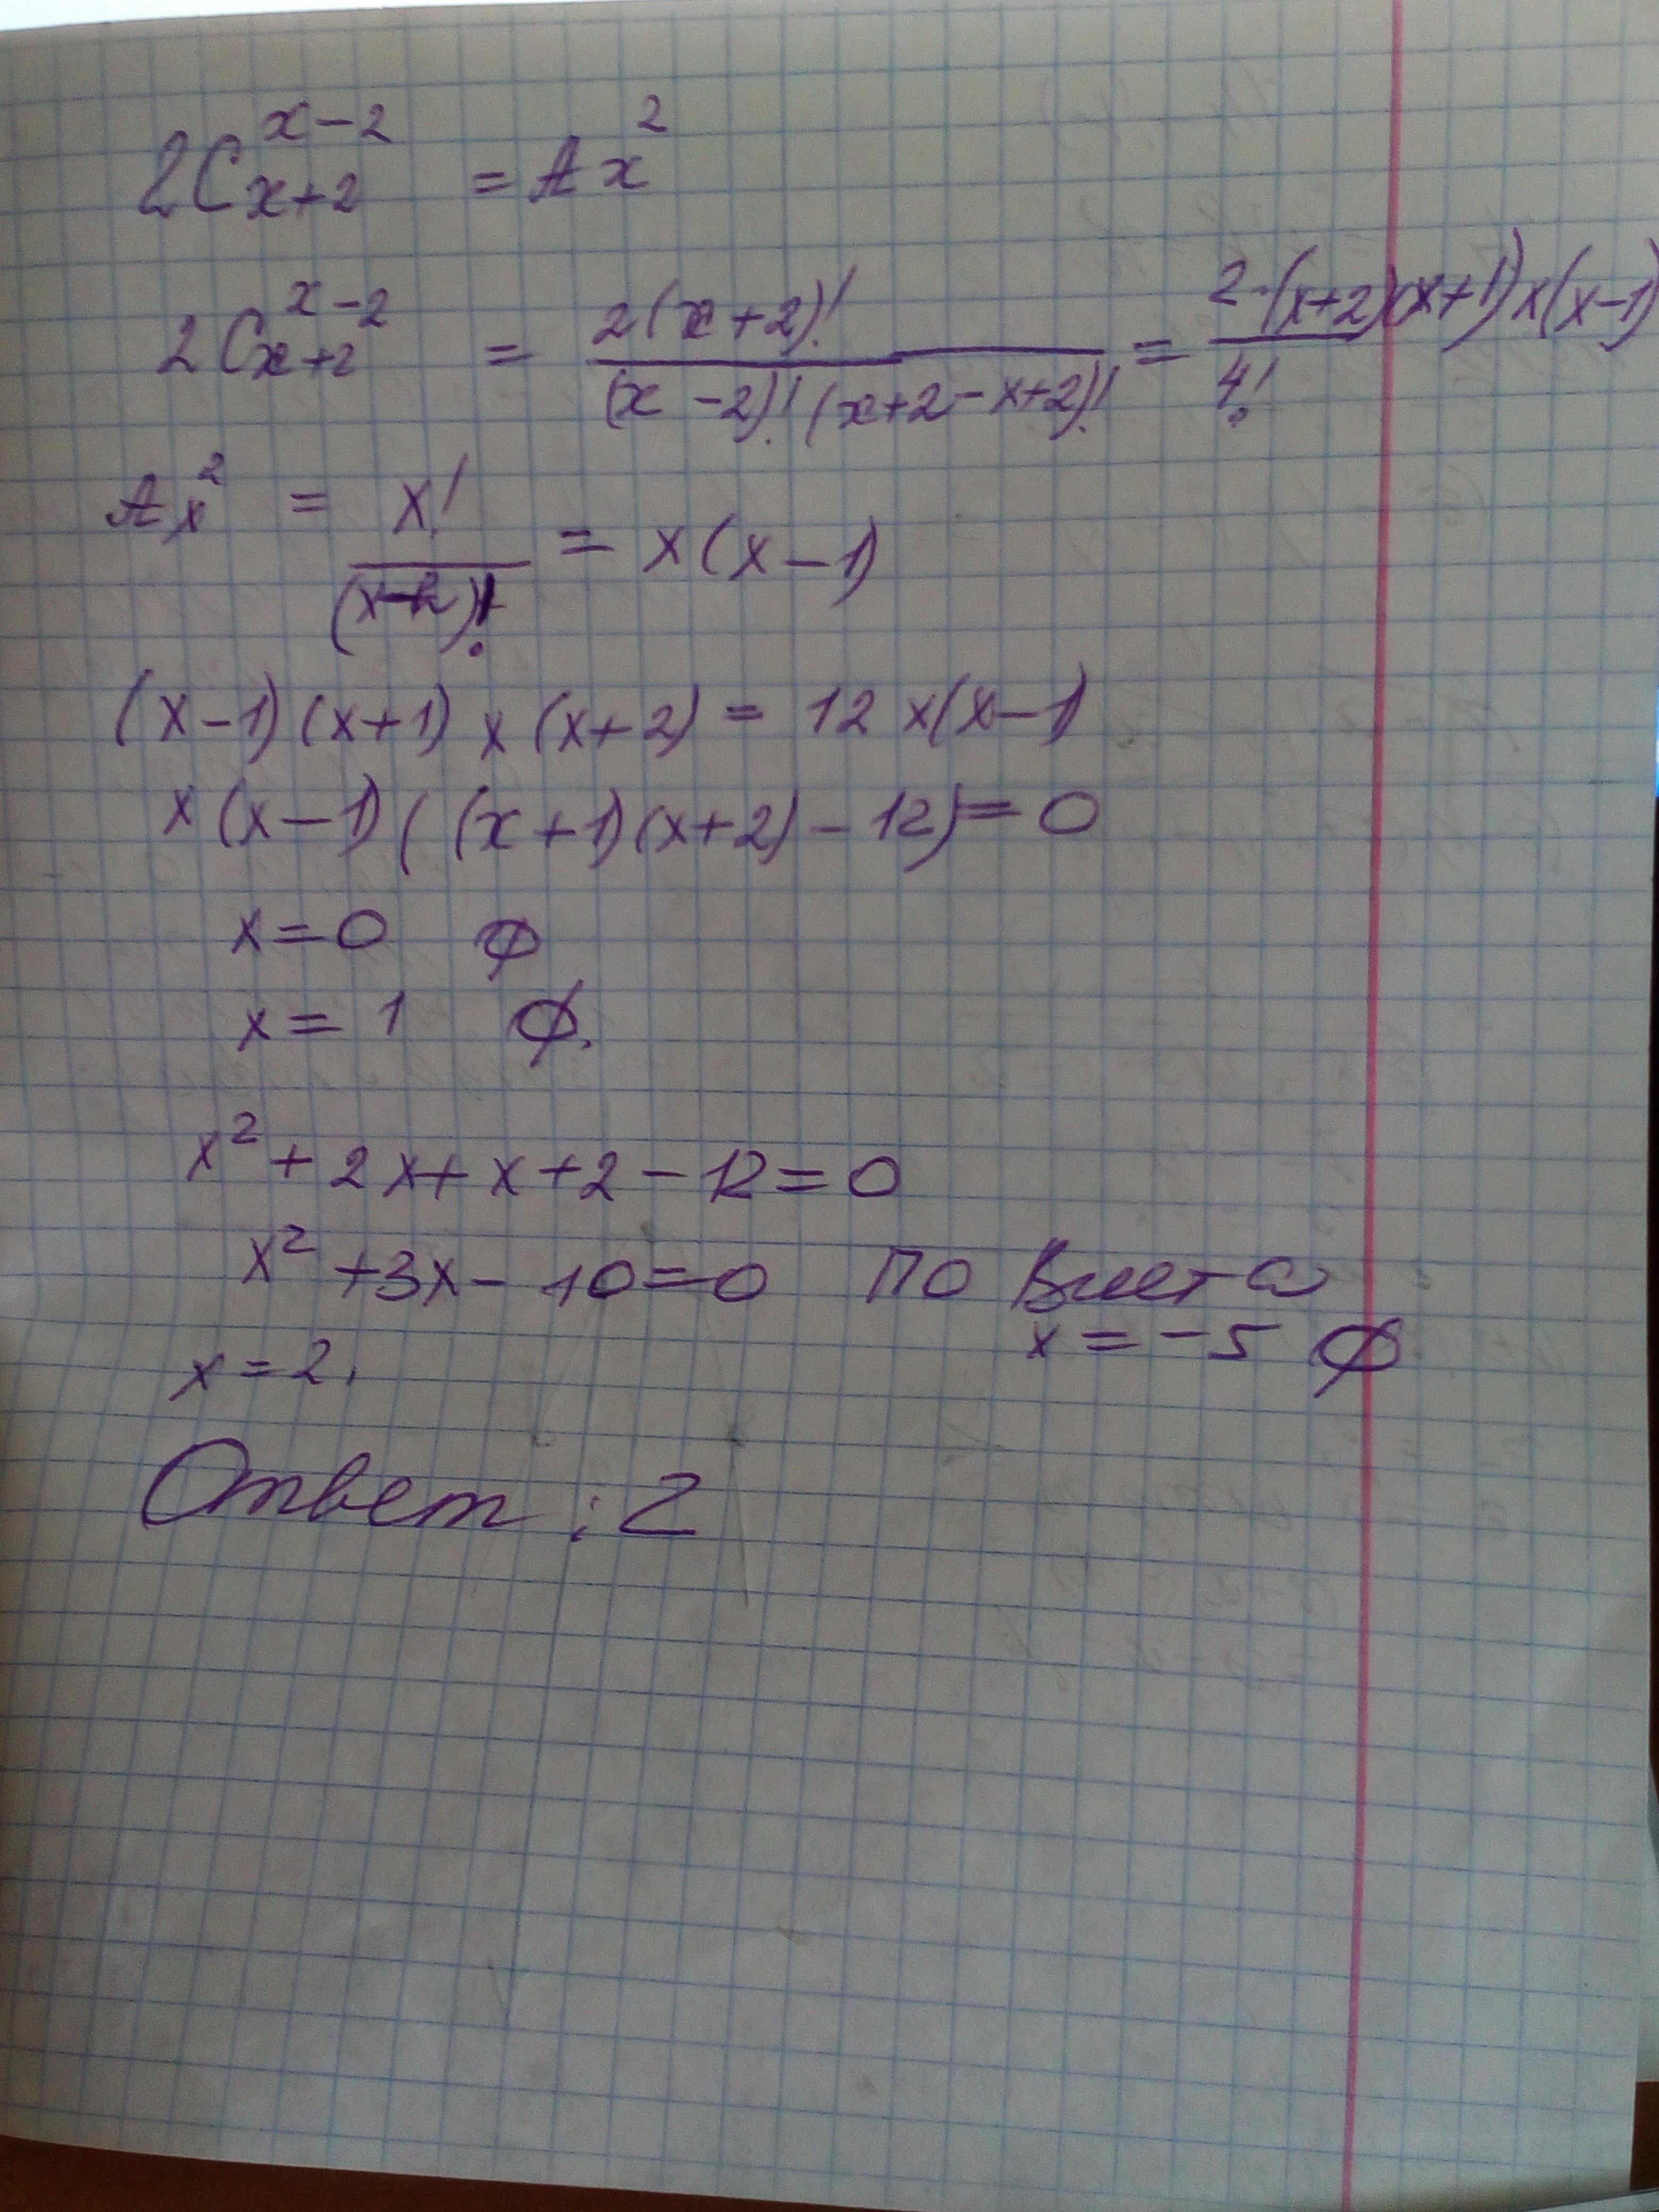 2C_{x+2}^{x-2} = A_x^2
2C_{x+2}^{x-2} = \frac{2(x+2)!}{(x-2)!(x+2-x+2)!} = \frac{2·(x+2)(x+1)x(x-1)}{4!}
A_x^2 = \frac{x!}{(x-2)!} = x(x-1)
(x-1)(x+1)x(x+2) = 12x(x-1)
x(x-1)((x+1)(x+2)-12)=0
x=0 ∅
x=1 ∅.
x²+2x+x+2-12=0
x²+3x-10=0 По Виета
x=2. x=-5 ∅
Ответ: 2